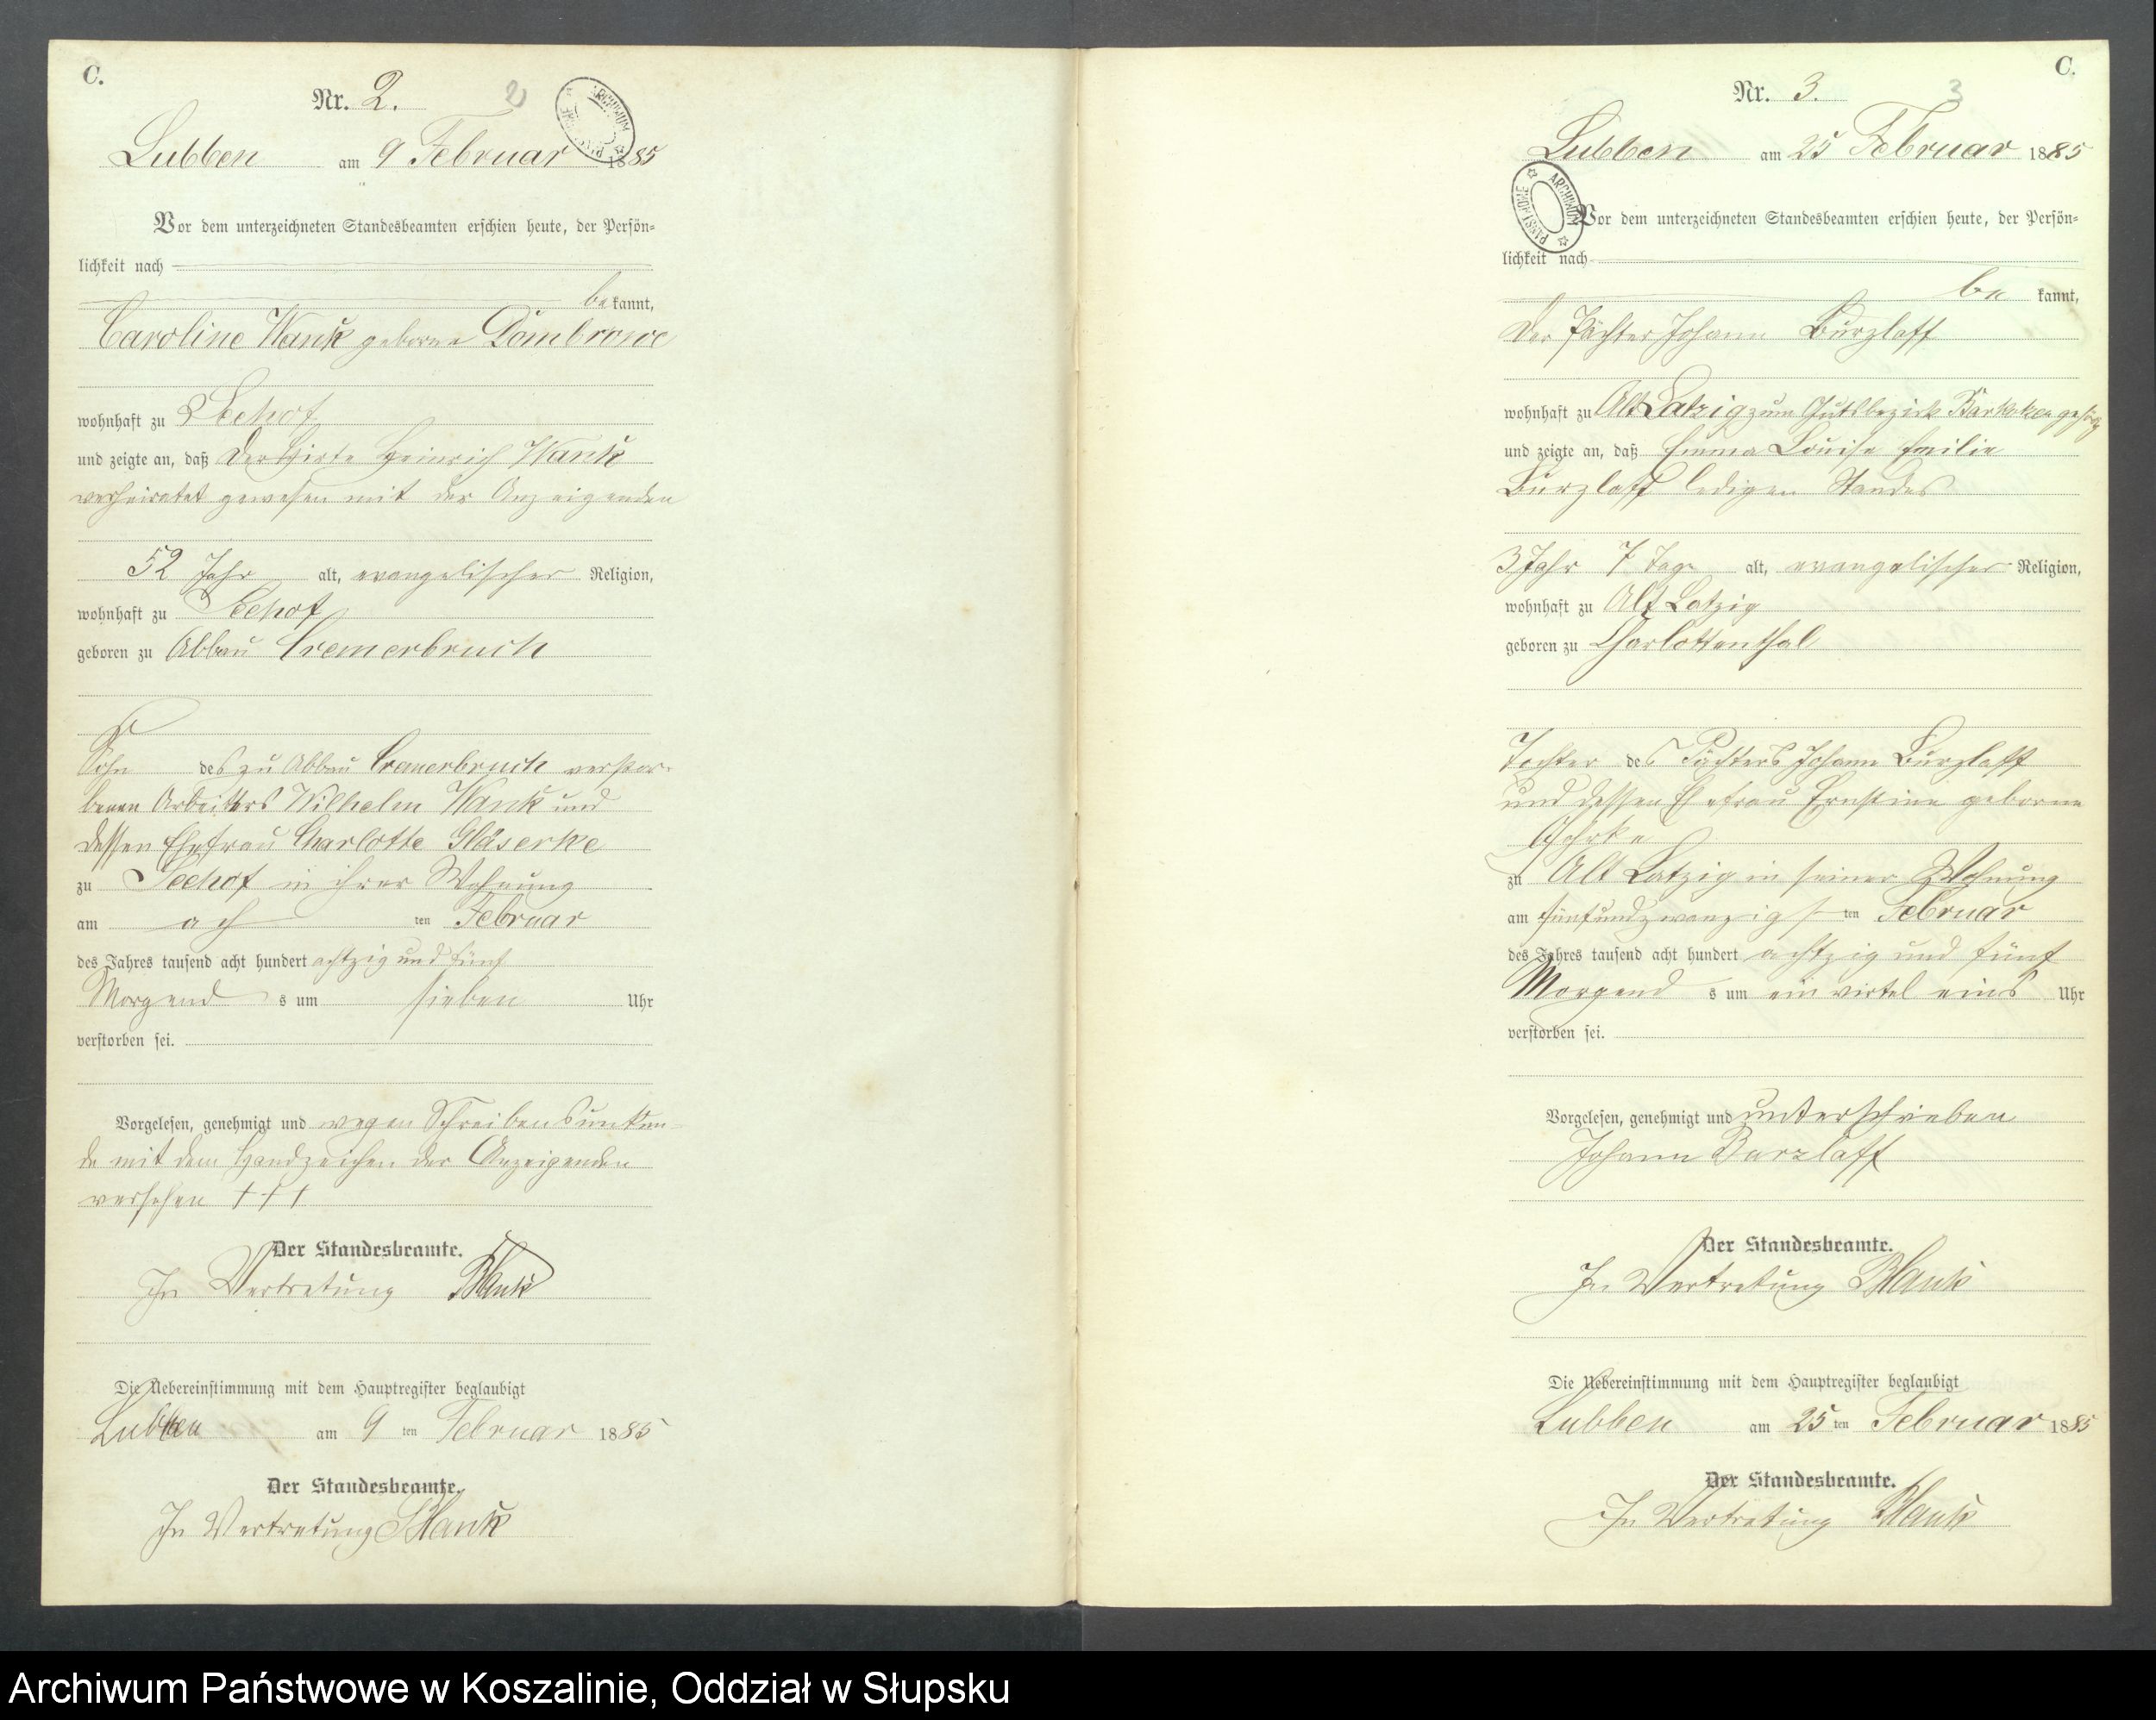 C.
Nr. 2.
2
Lubben am 9 Februar 1885
Vor dem unterzeichneten Standesbeamten erschien heute, der Persön=
lichkeit nach
be kannt,
Caroline Wank geborne Dombrowe
wohnhaft zu Seehof
und zeigte an, daß der Hirte Heinrich Wank
verheiratet gewesen mit der Anzeigenden
52 Jahr alt, evangelischer Religion,
wohnhaft zu Seehof
geboren zu Abbau Cremerbruch
Sohn des zu Abbau Cremerbruch verstor-
benen Arbeiters Wilhelm Wank und
dessen Ehefrau Charlotte Gläserke
zu Seehof in ihrer Wohnung
am ach ten Februar
des Jahres tausend acht hundert achtzig und fünf
Morgend s um sieben Uhr
verstorben sei.
Vorgelesen, genehmigt und wegen Schreibensunkun-
de mit dem Handzeichen der Anzeigenden
versehen † † †
Der Standesbeamte.
In Vertretung
Die Uebereinstimmung mit dem Hauptregister beglaubigt
Lubben am 9 ten Februar 1885
Der Standesbeamte.
In Vertretung
C.
Nr. 3.
3
Lubben am 25 Februar 1885
ARCHIWUM PAŃSTWOWE
Vor dem unterzeichneten Standesbeamten erschien heute, der Persön=
lichkeit nach
be kannt,
der Pächter Johann Burzlaff
wohnhaft zu Alt Latzig zum Gutsbezirk gehörig
und zeigte an, daß Emma Louise Emilie
Burzlaff ledigen Standes
3 Jahr 7 Tage alt, evangelischer Religion,
wohnhaft zu Alt Latzig
geboren zu Charlottenthal
Tochter des Pächters Johann Burzlaff
und dessen Ehefrau Ernstine geborne
zu Alt Latzig in seiner Wohnung
am fünfundzwanzigs ten Februar
des Jahres tausend acht hundert achtzig und fünf
Morgend s um ein virtel eins Uhr
verstorben sei.
Vorgelesen, genehmigt und unterschrieben
Johann Burzlaff
Der Standesbeamte.
In Vertretung
Die Uebereinstimmung mit dem Hauptregister beglaubigt
Lubben am 25 ten Februar 1885
Der Standesbeamte.
In Vertretung
Archiwum Państwowe w Koszalinie, Oddział w Słupsku